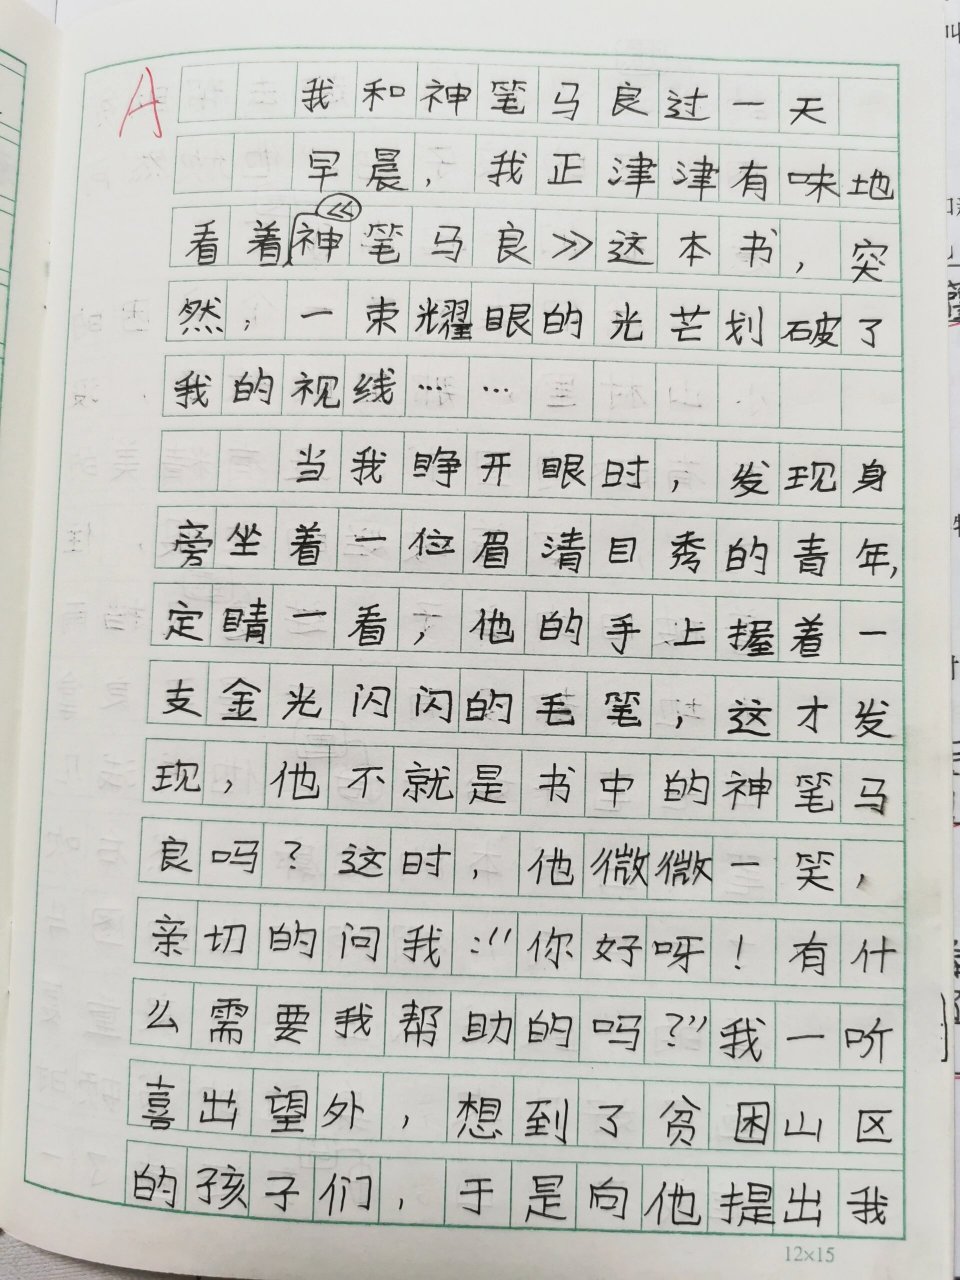 A
我和神笔马良过一天
早晨，我正津津有味地
看着《神笔马良》这本书，突
然，一束耀眼的光芒划破了
我的视线……
当我睁开眼时，发现身
旁坐着一位眉清目秀的青年，
定睛一看，他的手上握着一
支金光闪闪的毛笔，这才发
现，他不就是书中的神笔马
良吗？这时，他微微一笑，
亲切的问我：“你好呀！有什
么需要我帮助的吗？”我一听
喜出望外，想到了贫困山区
的孩子们，于是向他提出我
12×15